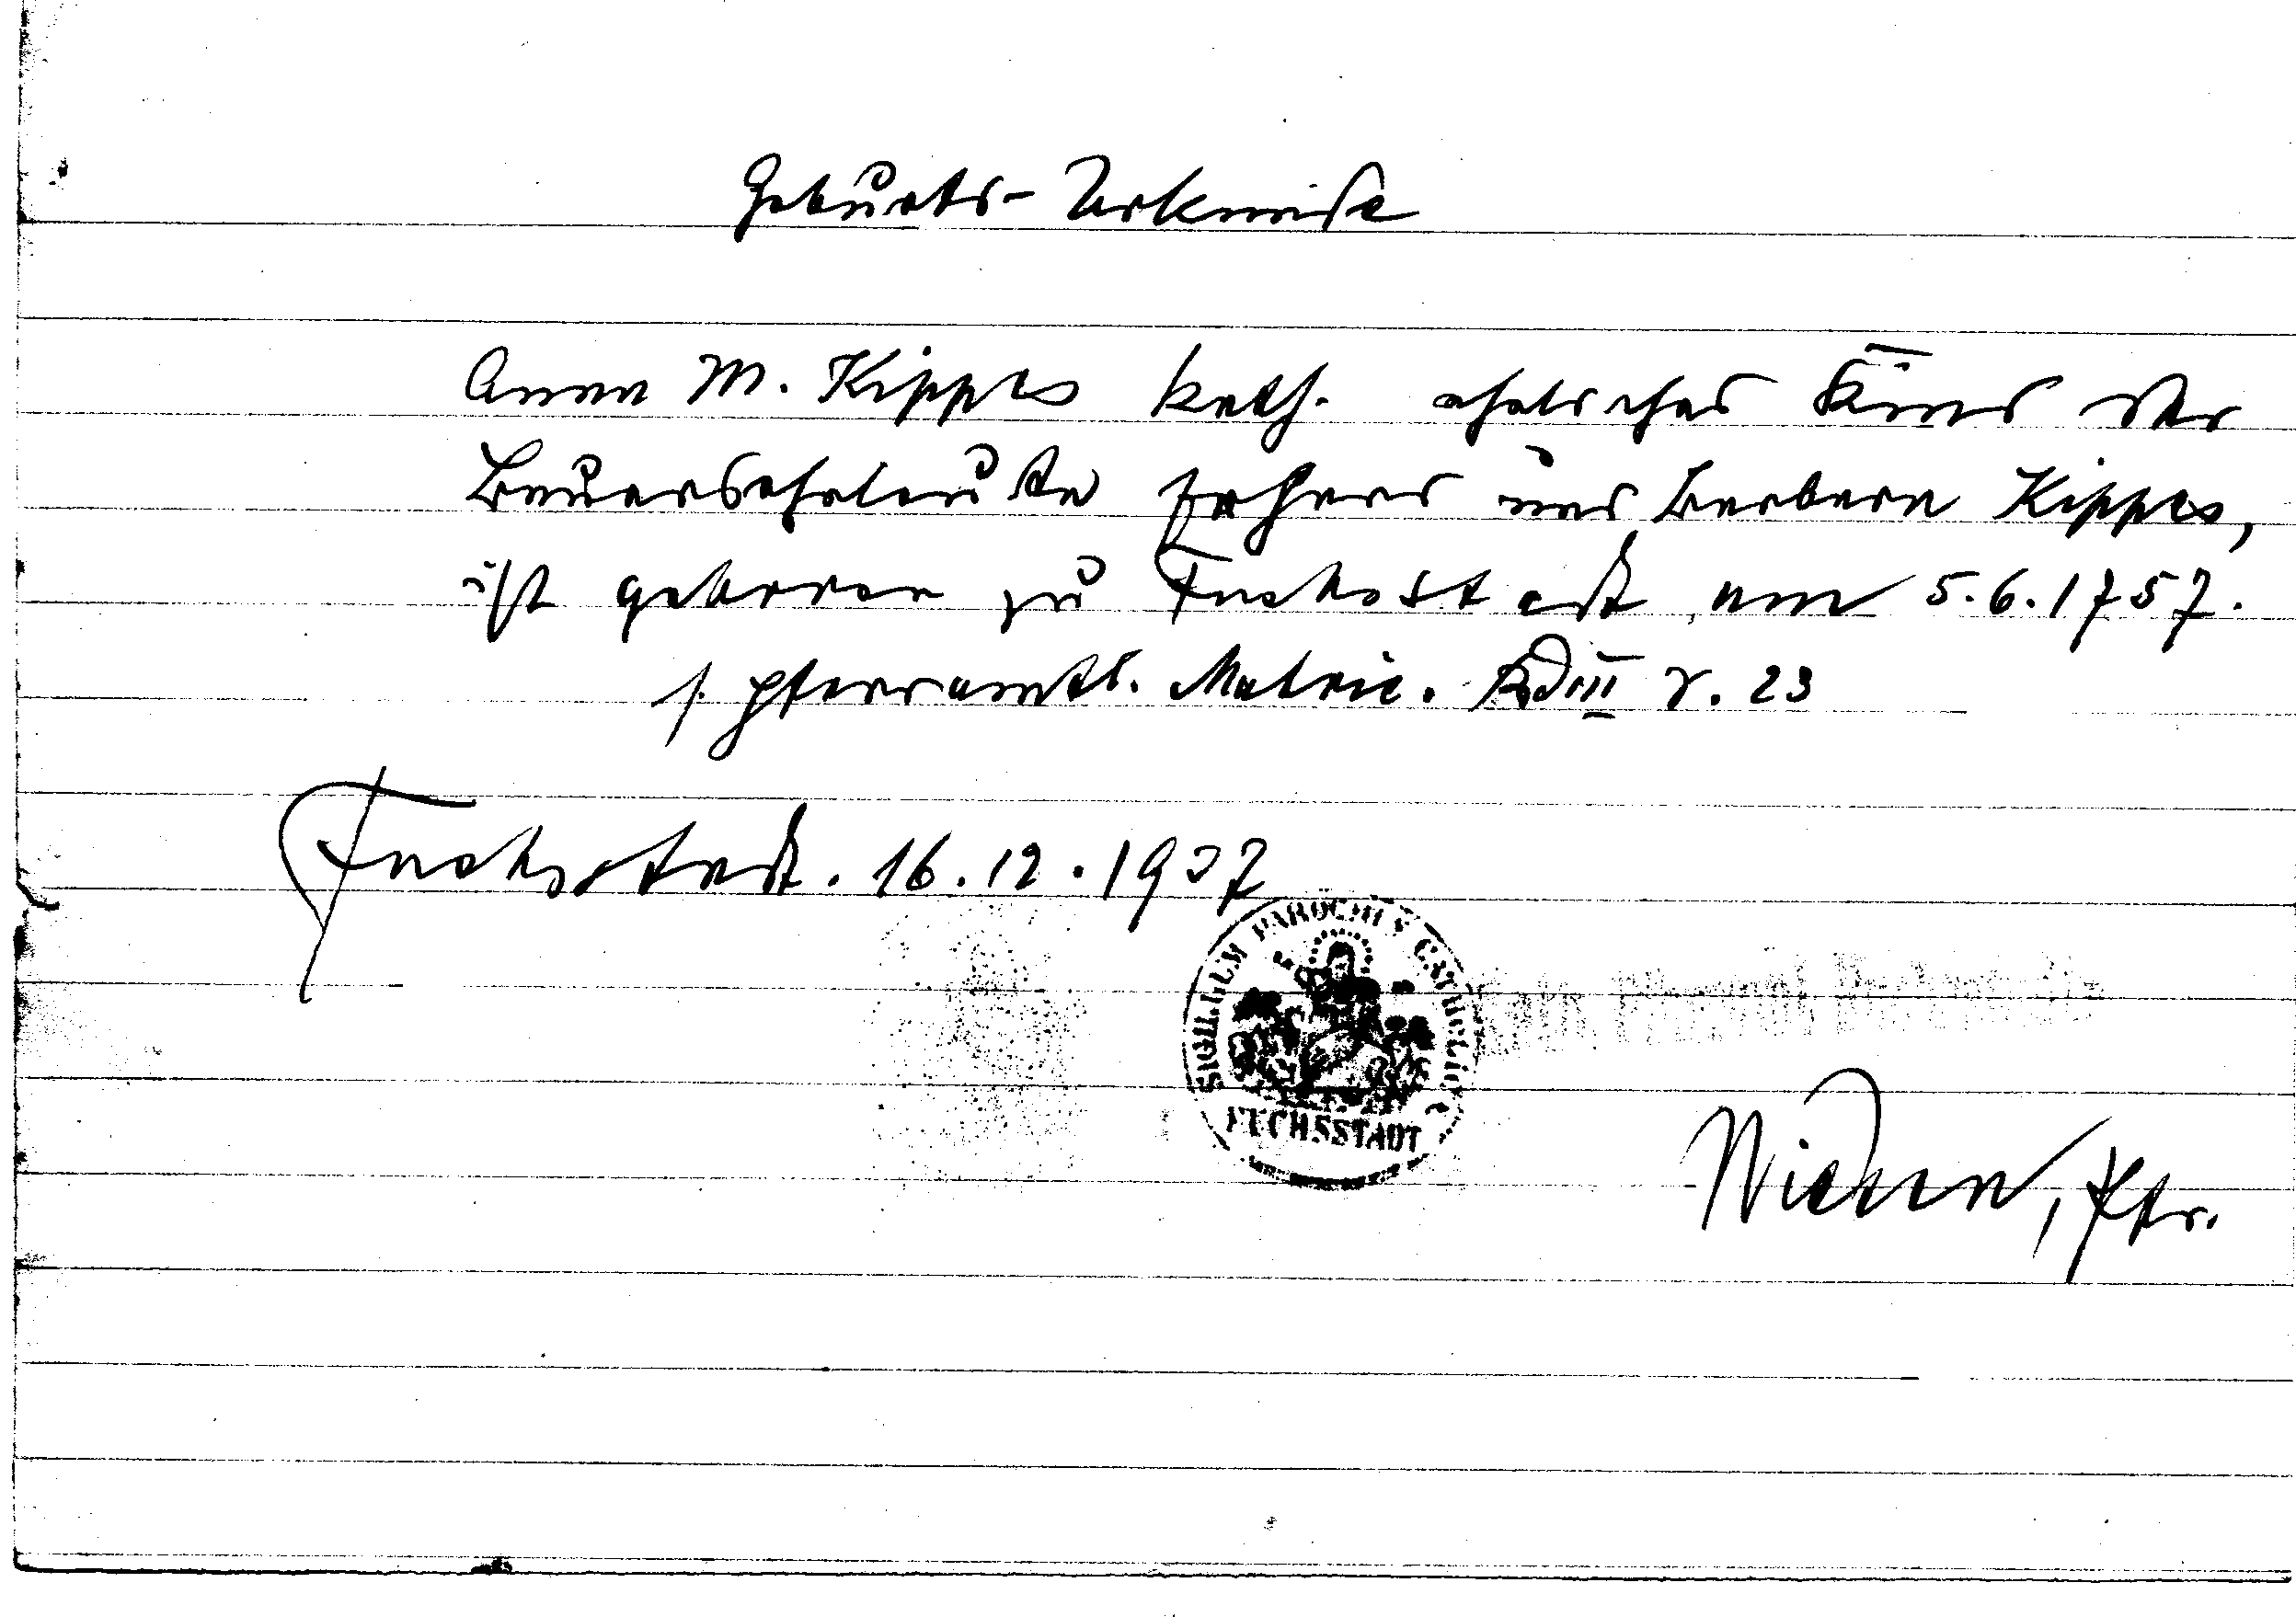 Geburts-Urkunde
Anna M. Kippes kath. eheliches Kind der
Bauerseheleute und Barbara Kippes,
ist geboren zu Fuchsstadt am 5.6.1757.
s. pfarramtl. Matric. Bd III S. 23
Fuchsstadt. 16.12.1937
SIGILLUM PAROCHIÆ CATHOLICÆ
FUCHSSTADT
Kath. Pfarramt
Pfr.